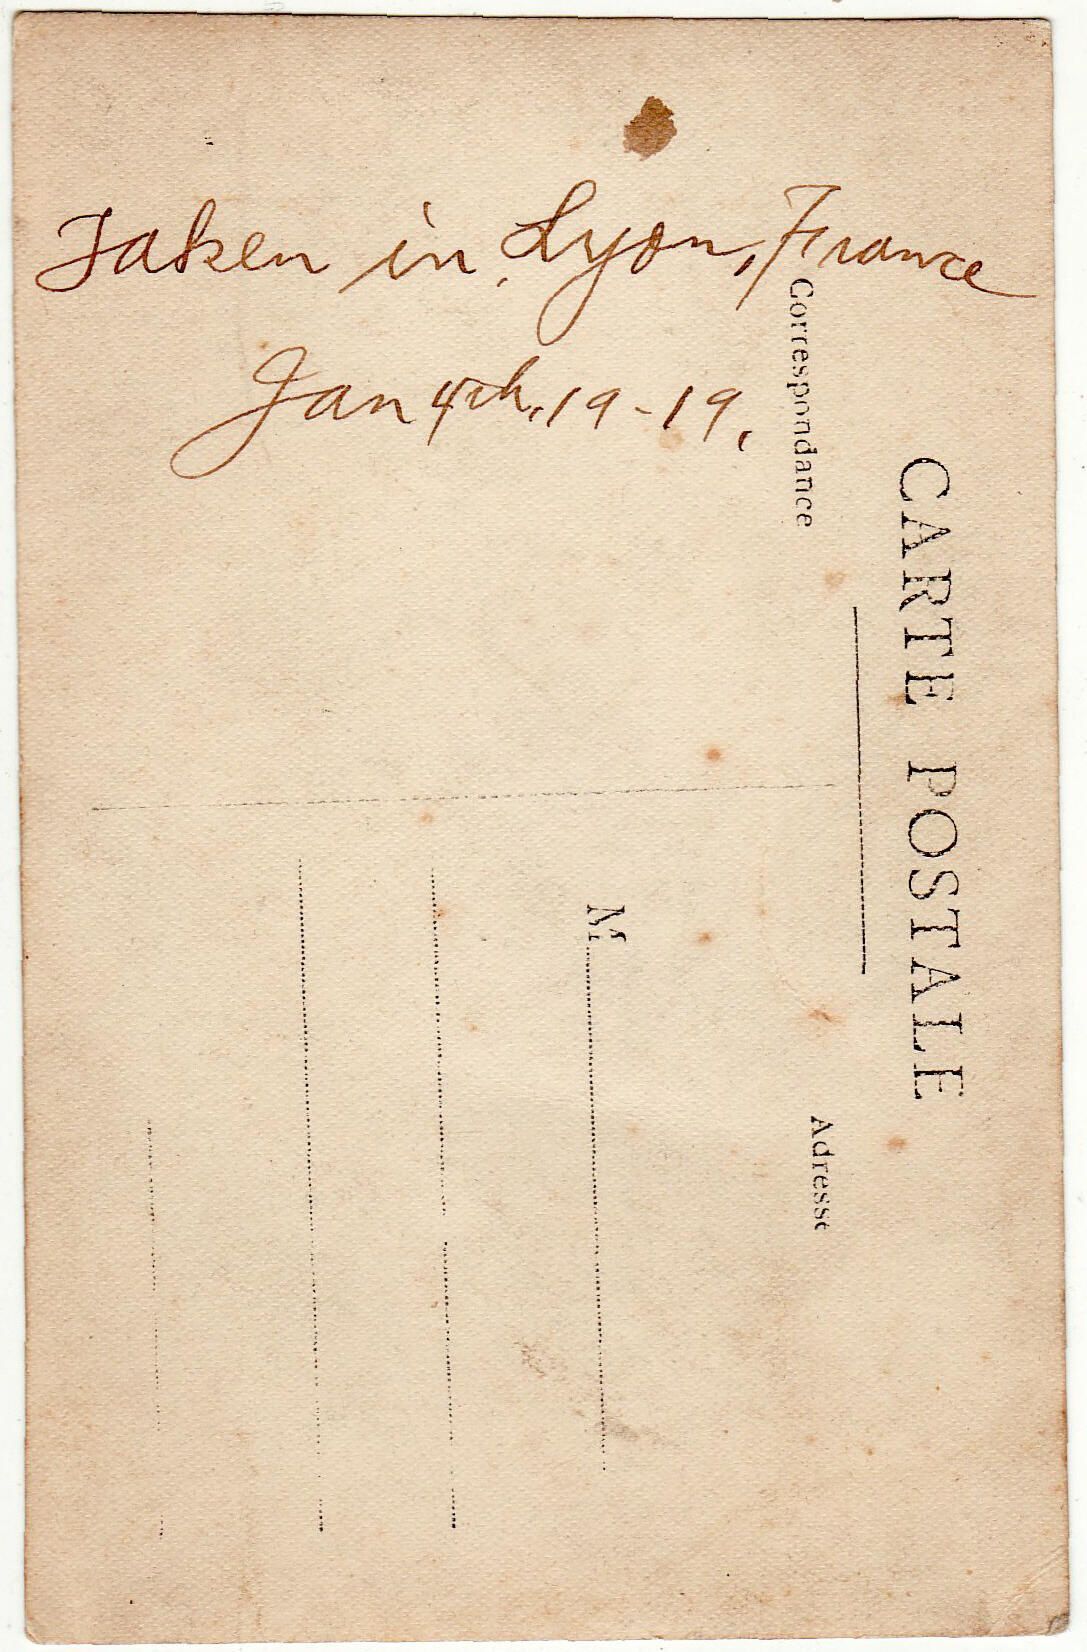 Taken in Lyon, France
Jan 4th, 19-19.
CARTE POSTALE
Correspondance
Adresse
M